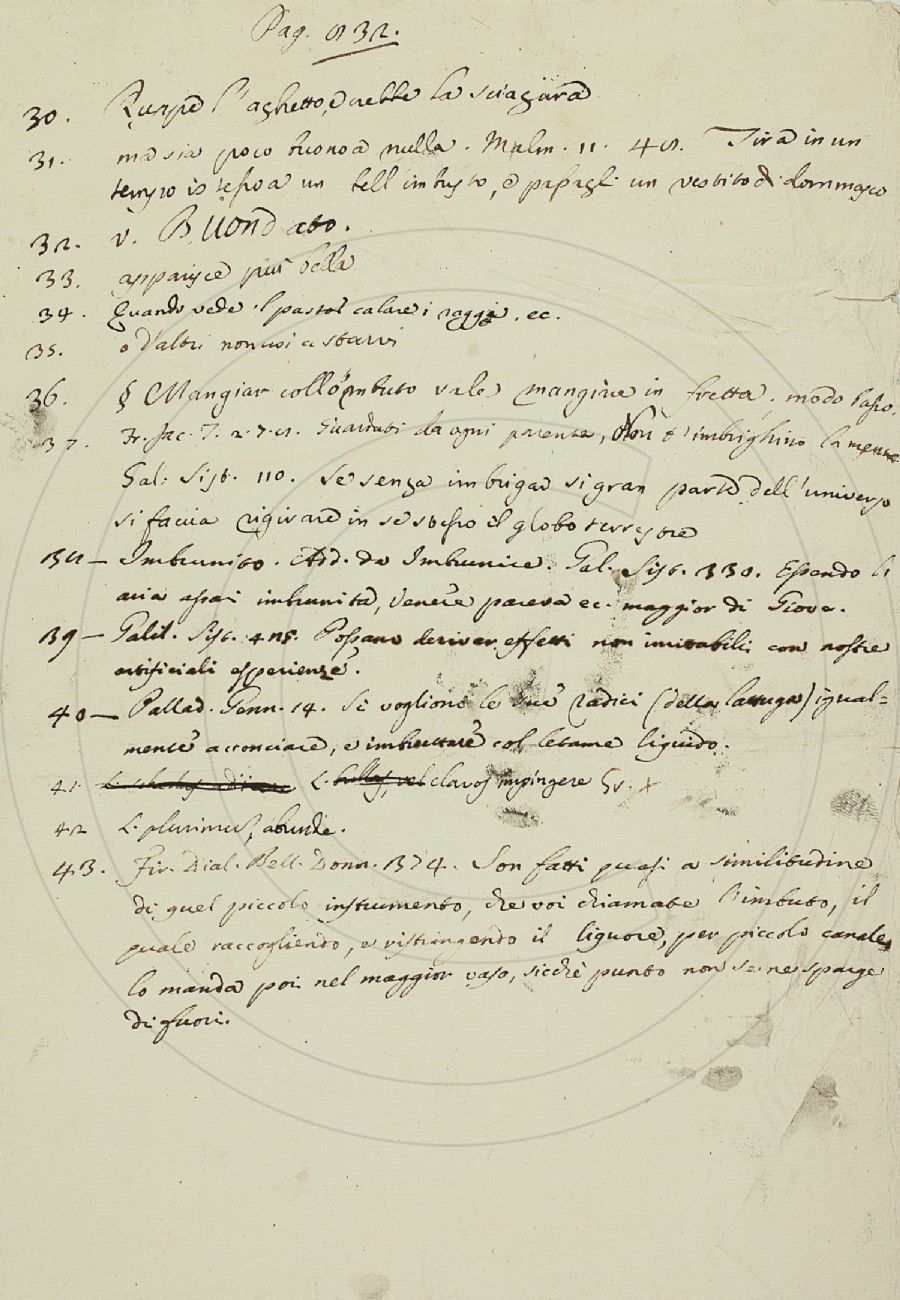 Pag. 832.
30. Ruppe l'aghetto, e nebbe la sciagura
31. ma sia poco buono a nulla. Malm. 11. 48. Tira in un
tempo istesso a un bell'imbusto, e passagli un vestito di dommasco
32. v. Buondato.
33. apparisce più bella
34. Quando vede 'l pastor calare i raggi, ec.
35. o d'altri non usi a starvi
36. § Mangiar coll'ombuto vale mangiare in fretta. modo basso.
37. Fr. Jac. T. 2. 7. 8. Guardati da ogni parente, Non t'imbrighino la mente
Gal: Sist. 110. se senza imbrigar si gran parte dell'universo
si faccia rigirare in se stesso il globo terrestre
38 — Imbrunito. Add. da Imbrunire. Gal. Sist. 330. Essendo l'
aria assai imbrunita, Venere pareva ec. maggior di Giove.
39 — Galil. Sist. 415. Possano derivar effetti non imitabili con nostre
artificiali esperienze.
40 — Pallad. Genn. 14. Si vogliono le sue radici (della lattuga) igual=
mente acconciare, e imbruttare col letame liquido.
41. L. bullas, vel clavos impingere Gr. x
42 L. plurimus, abunde.
43. Fir. Dial. Bell. Donn. 374. Son fatti quasi a similitudine
di quel piccolo instrumento, che voi chiamate l'imbuto, il
quale raccogliendo, e ristringendo il liquore, per piccolo canale
lo manda poi nel maggior vaso, sicchè punto non se ne sparge
di fuori.